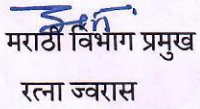 मराठी विभाग प्रमुख
रत्ना ज्वरास